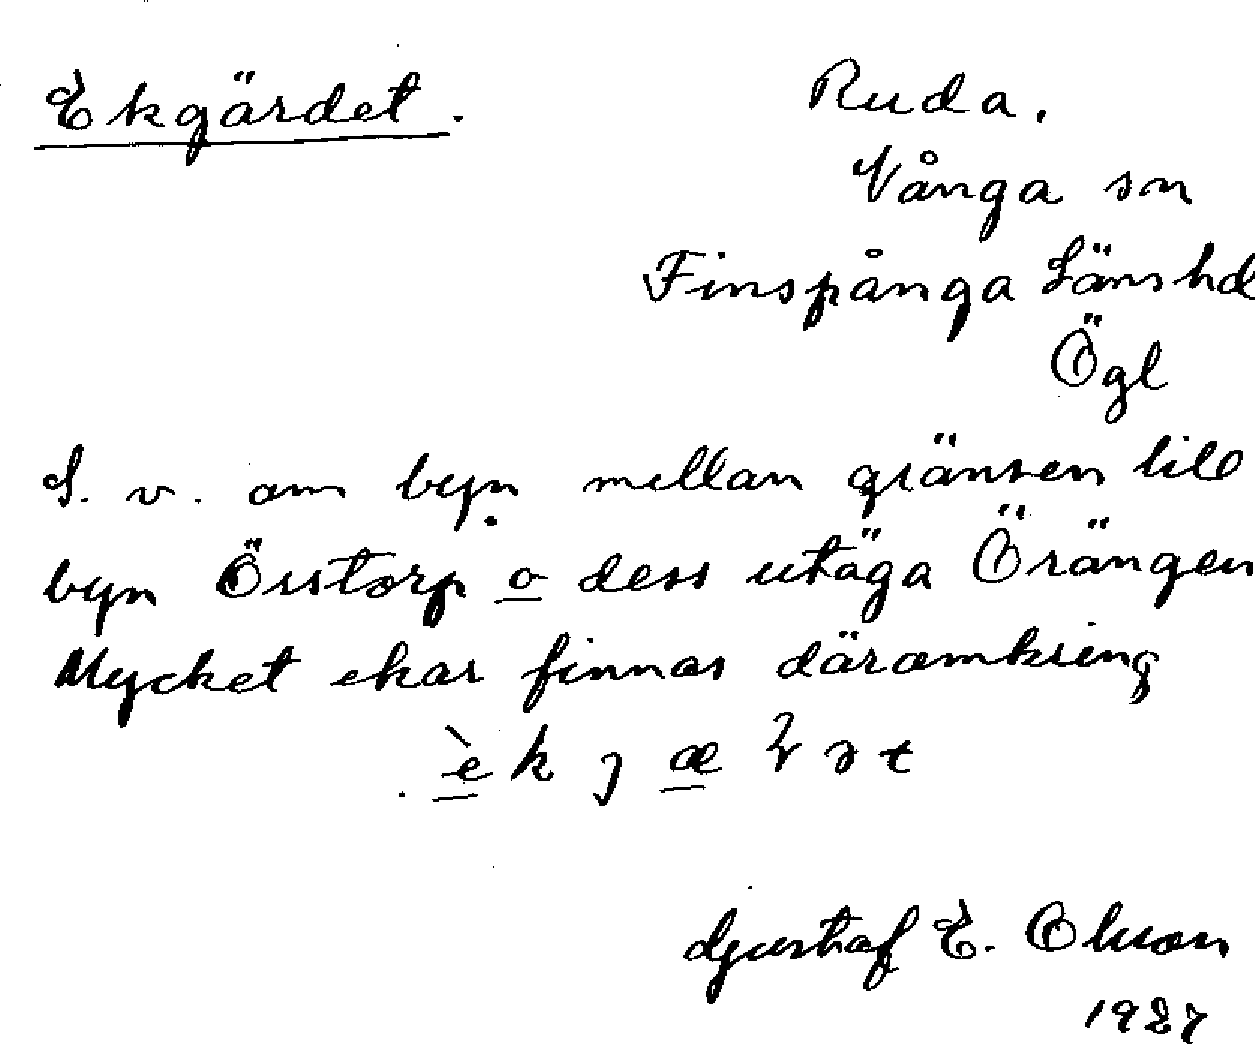 Ekgärdet.
Ruda.
Vånga sn
Finspånga Läns hd
Ögl
S. v. om byn mellan gränsen till
byn Örstorp o dess utäga Örängen
Mycket ekar finnas däromkring
Gustaf E. Olsson
1927